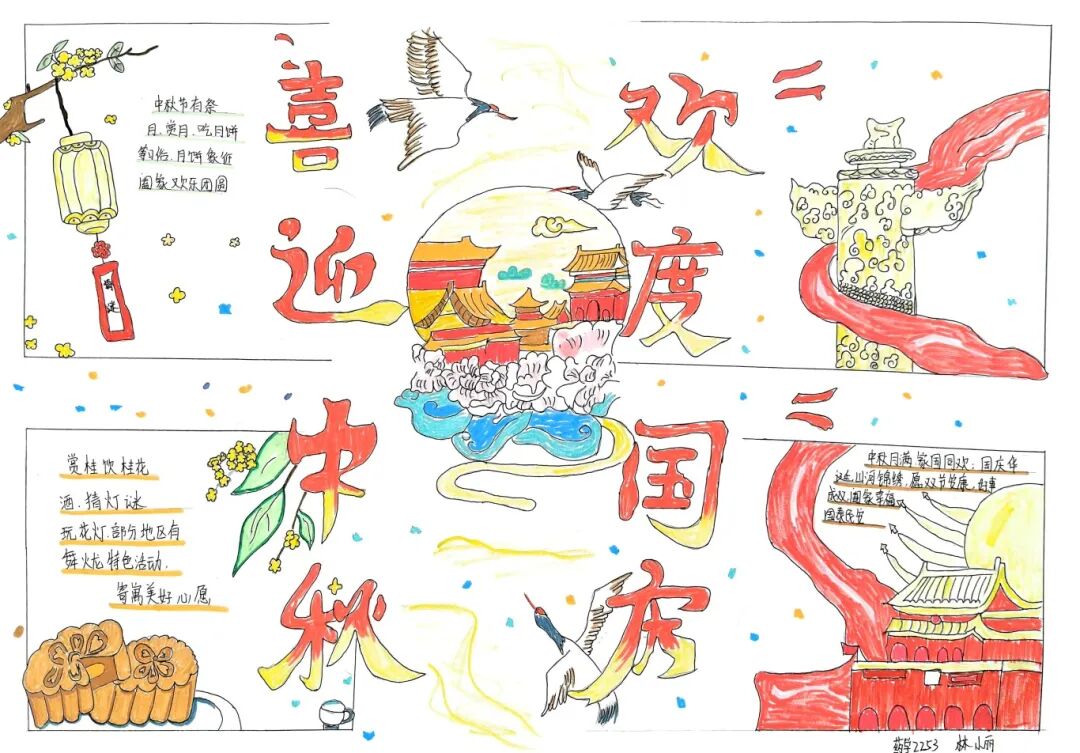 喜迎中秋
欢度国庆
中秋节有祭
月、赏月、吃月饼
等习俗.月饼象征
阖家欢乐团圆
赏桂饮桂花
酒、猜灯谜
玩花灯.部分地区有
舞火龙特色活动.
寄寓美好心愿
中秋月满家国同欢；国庆华
诞山河锦绣,愿双节安康,
成双,阖家幸福
国泰民安
药学2253 林小丽